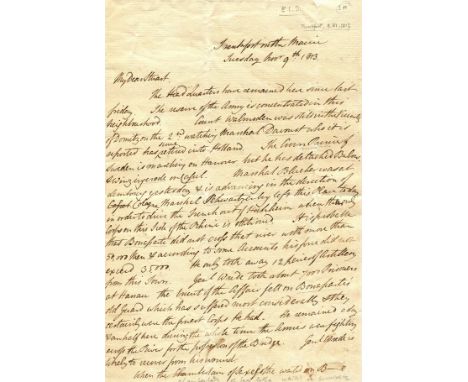 Frankfort on the Maine
Tuesday Novr 9th 1813
My Dear Stuart
The Head Quarters have remained here since last
friday The reserve of the Army is concentrated in this
Neighbourhood Count Walmoden was still in the vicinity
of Domitz on the 2d watching Marshal Davoust who it is
reported has since retired into Holland The Crown Prince of
Sweden is marching on Hanover but he has detached Bulow
& Winzingerode on Cassel. Marshal Blucher was at
yesterday & is advancing in the direction of
Cologne, Marshal Schwartzenberg left this Place today
in order to drive the French out of when the only
Corps on this Side of the Rhine is stationed It is probable
that Bonaparte did not cross that river with more than
50,000 Men & according to some Accounts his force did not
exceed 35000 He only took away 12 pieces of Artillery
from this Town. Genl Wrede took about 7000 Prisoners
at Hanau the brunt of the Affair fell on Bonaparte's
old Guard which has suffered most considerably & they
certainly were the finest Corps He had. He remained a day
& an half here during the whole time the Armies were fighting
across the River for the possession of the Bridge. Genl Wrede is
likely to recover from his wound.
When the Chamberlain of Saxe the waits on B